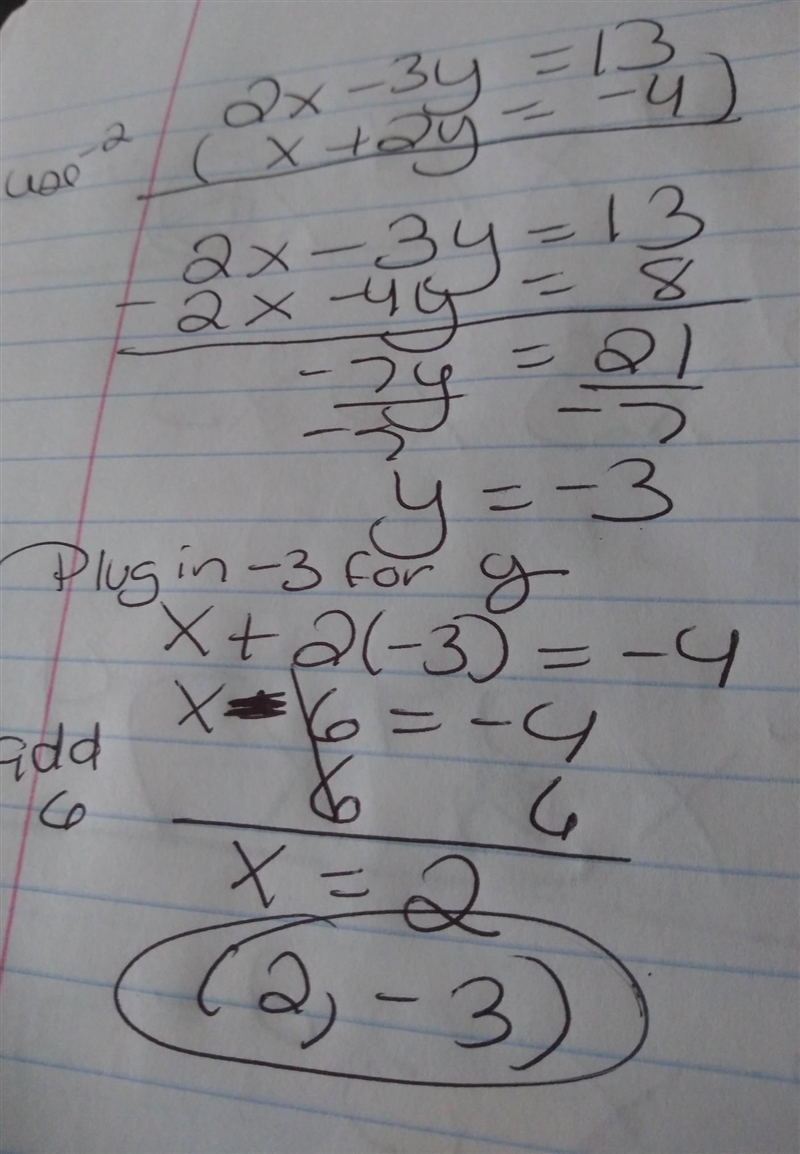 2x - 3y = 13
use -2 (x + 2y = -4)
2x - 3y = 13
-2x - 4y = 8
-7y = 21
-7 -7
y = -3
Plug in -3 for y
x + 2(-3) = -4
x - 6 = -4
add 6 6
6
x = 2
(2, -3)